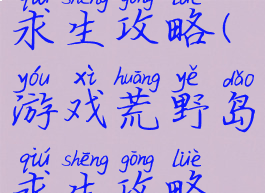 qiú shēng gōng lüè
求生攻略(
yóu xì huāng yě dǎo
游戏荒野岛
qiú shēng gōng lüè
求生攻略